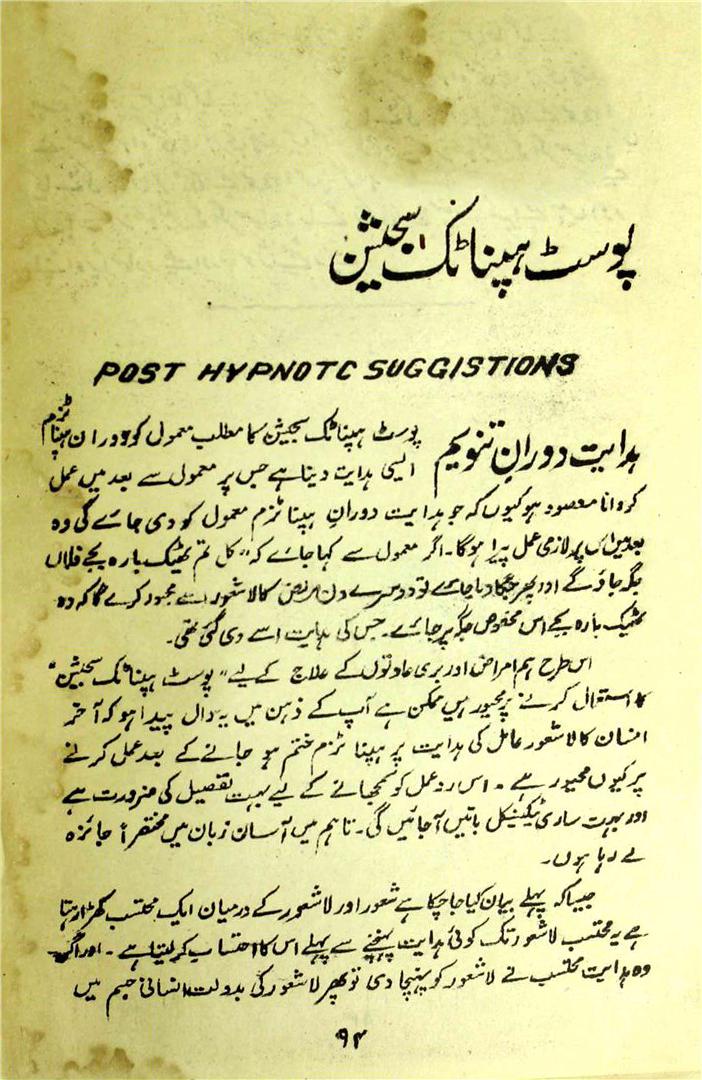 پوسٹ ہپناٹک سجیشن
POST HYPNOTC SUGGISTIONS
ہدایت دوران تنویم پوسٹ ہپناٹک سجیشن کا مطلب معمول کو دوران ہپناٹزم
ایسی ہدایت دینا ہے جس پر معمول سے بعد میں عمل
کروانا معصود ہو کیوں کہ جو ہدایت دوران ہپناٹزم معمول کو دی جائے گی وہ
بعد میں اس پر لازمی عمل پیرا ہوگا۔ اگر معمول سے کہا جائے کہ "کل تم ٹھیک بارہ بجے فلاں
جگہ جاؤ گے اور پھر جگا دیا جائے تو دوسرے دن مریض کا لاشعور اسے مجبور کرے گا کہ وہ
ٹھیک بارہ بجے اس مخصوص جگہ پر جائے۔ جس کی ہدایت اسے دی گئی تھی۔
اس طرح ہم امراض اور بری عادتوں کے علاج کے لیے "پوسٹ ہپناٹک سجیشن"
کا استعمال کرنے پر مجبور ہیں ممکن ہے آپ کے ذہن میں یہ وال پیدا ہو کہ آخر
انسان کا لاشعور عامل کی ہدایت پر ہپناٹزم ختم ہو جانے کے بعد عمل کرنے
پر کیوں مجبور ہے ۔ اس رد عمل کو سمجھانے کے لیے بہت تفصیل کی ضرورت ہے
اور بہت ساری ٹیکنیکل باتیں آجائیں گی۔ تاہم میں آسان زبان میں مختصراً جائزہ
لے رہا ہوں۔
جیسا کہ پہلے بیان کیا جا چکا ہے شعور اور لاشعور کے درمیان ایک محتسب کھڑا رہتا
ہے یہ محتسب لاشعور تک کوئی ہدایت پہنچنے سے پہلے اس کا احتساب کر لیتا ہے ۔ اور اگر
وہ ہدایت محتسب نے لاشعور کو پہنچا دی تو پھر لاشعور کی بدولت انسانی جسم میں
۹۴